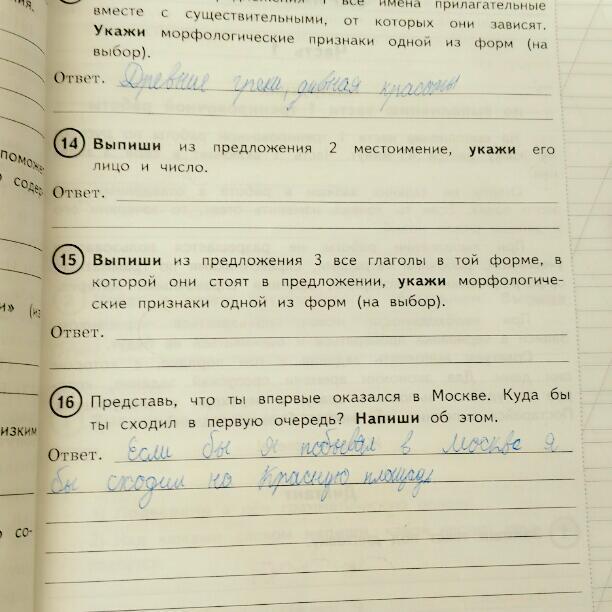 все имена прилагательные
вместе с существительными, от которых они зависят.
Укажи морфологические признаки одной из форм (на
выбор).
Ответ. Древние греки, дивная красоты
14 Выпиши из предложения 2 местоимение, укажи его
лицо и число.
Ответ.
15 Выпиши из предложения 3 все глаголы в той форме, в
которой они стоят в предложении, укажи морфологиче-
ские признаки одной из форм (на выбор).
Ответ.
16 Представь, что ты впервые оказался в Москве. Куда бы
ты сходил в первую очередь? Напиши об этом.
Ответ. Если бы я побывал в Москве я
бы сходил на Красную площадь